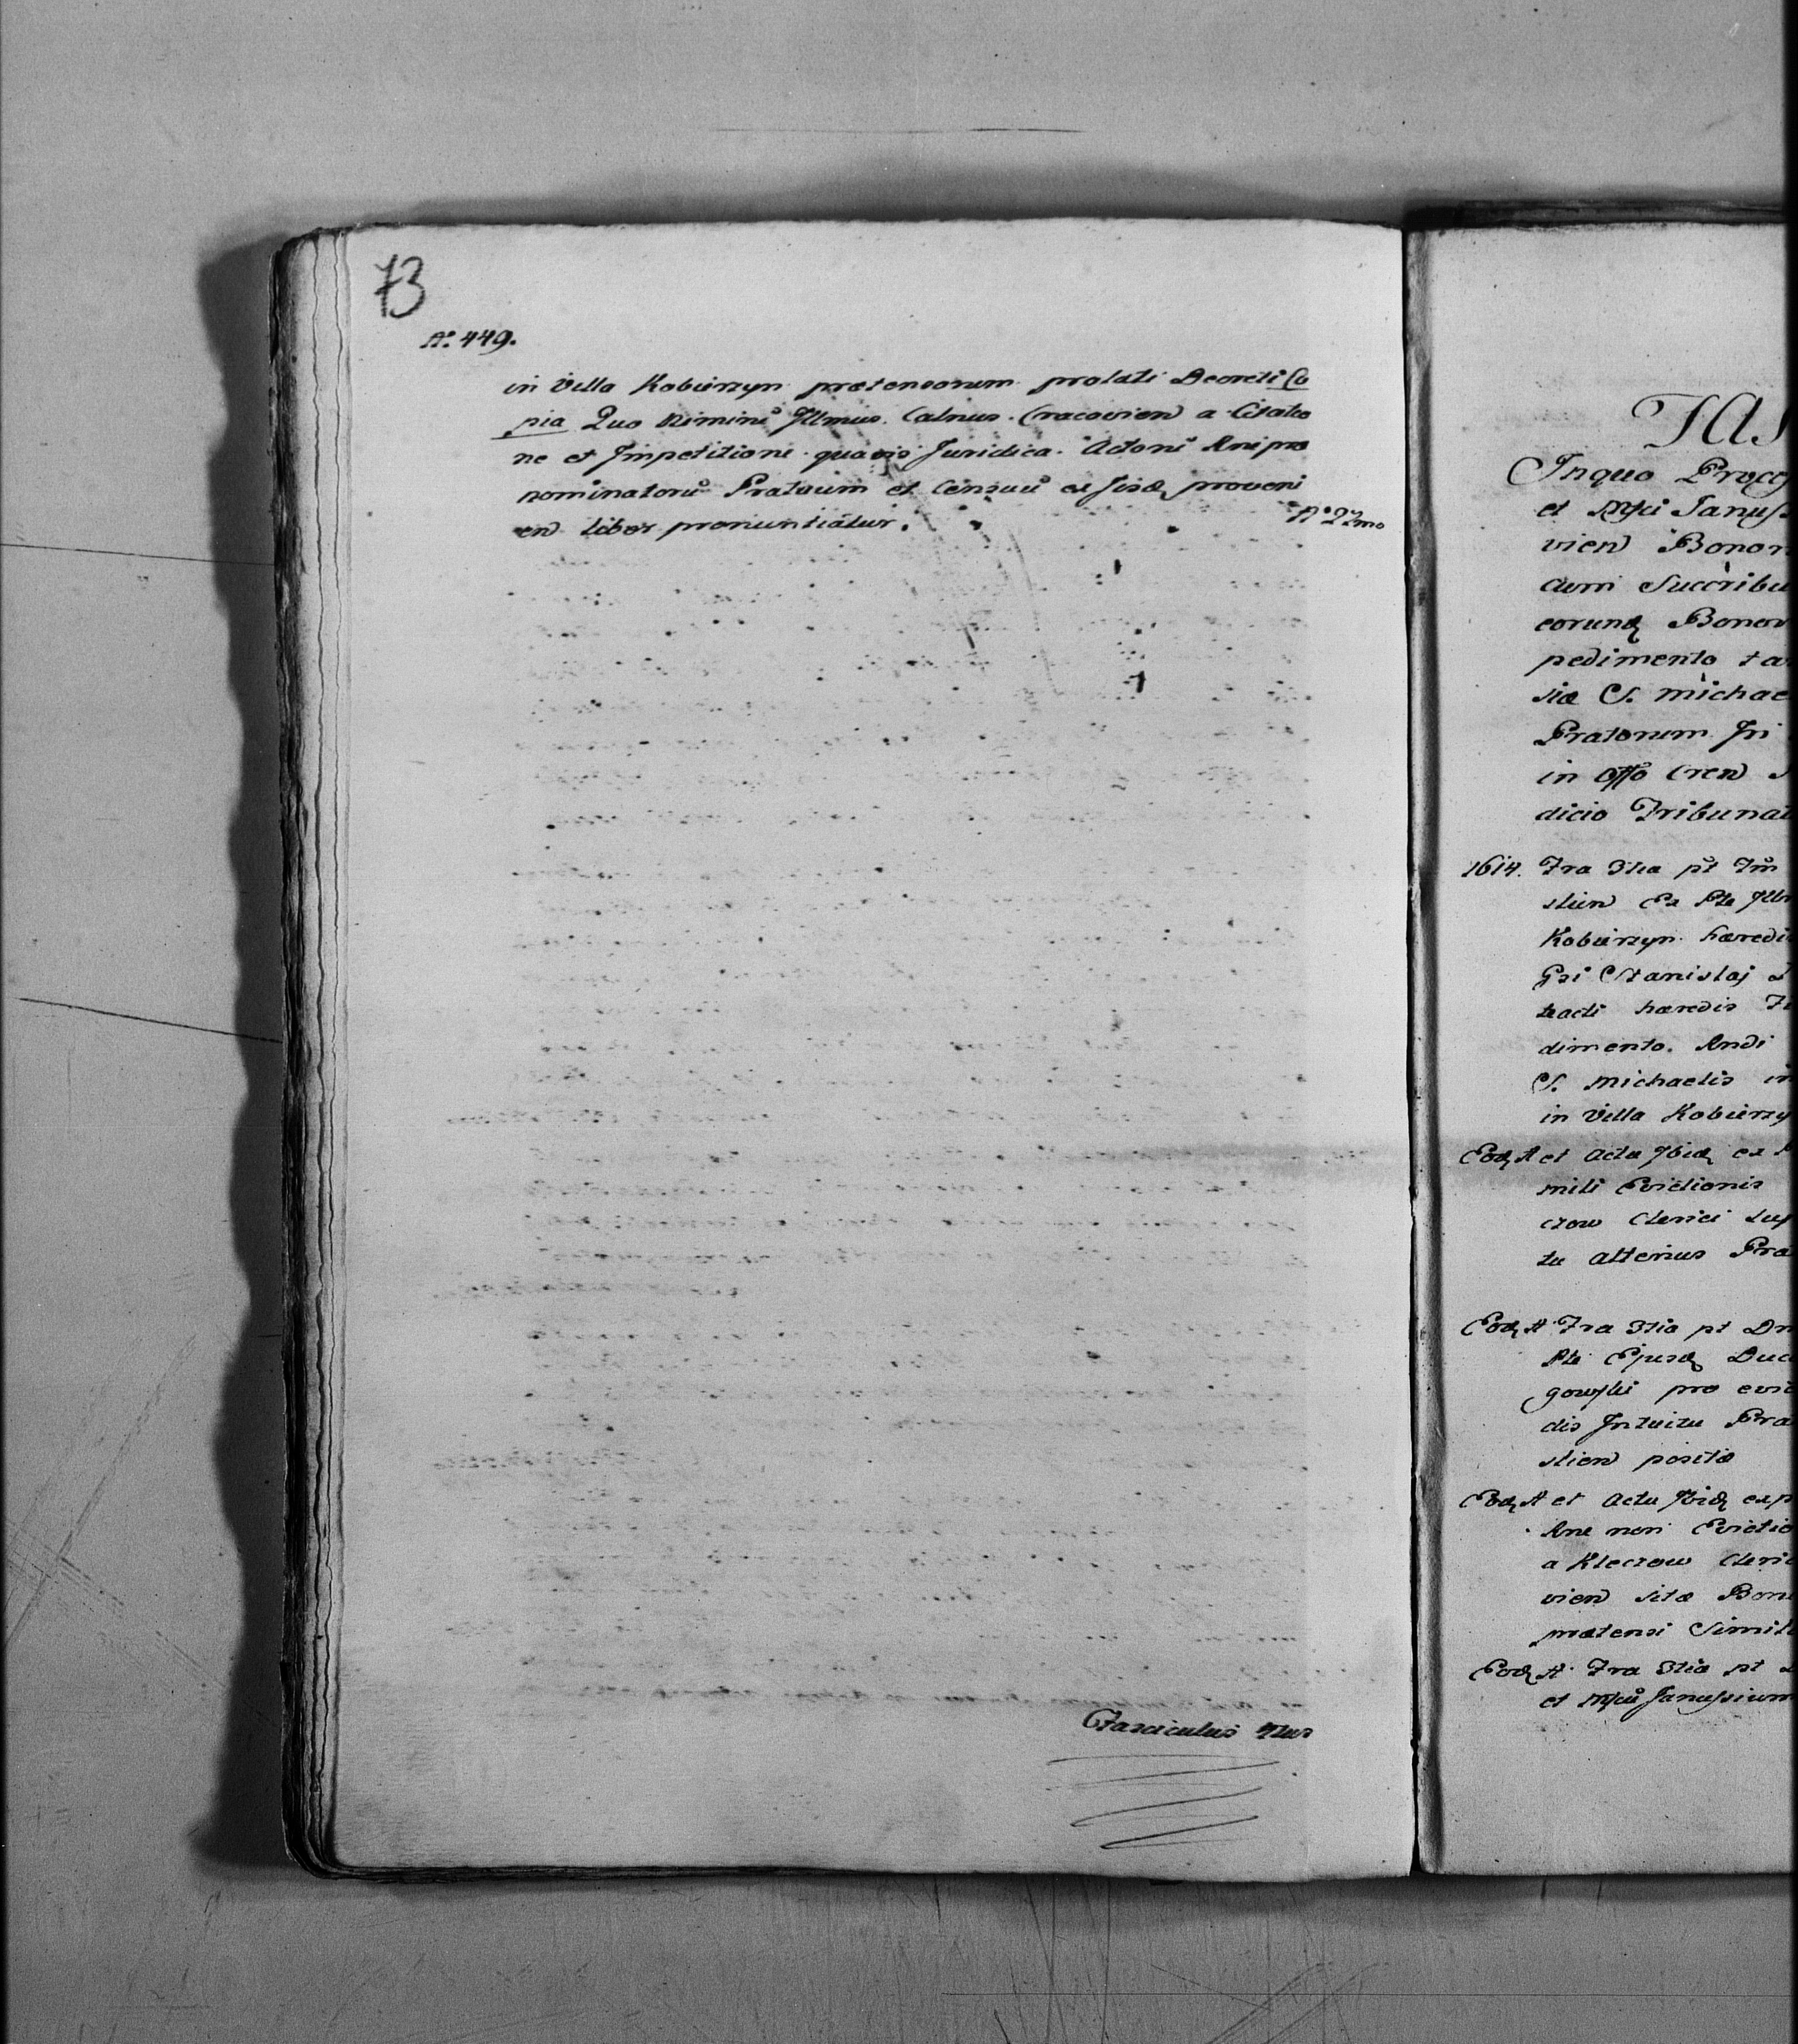 73
N.º 449.
in Villa Kobierzyn prætensorum prolati Decreti Co
pia Quo nimirũ Jllmus. Calnus. Cracovien a Citatio
ne et Jmpetitione quavis Juridica Actoris Rni pro
nominatorũ Pratuum et Censuũ ex Jisdẽ proveni
en liber pronuntiatur.
Nº 22mo
Fasciculus
FAS
Inquo Process
et Mfci Januss
vien Bonor
cum Succribu
eorund Bonor
pedimento
siæ S. Michae
Pratorum Jn
in Offo Cren
dicio Tribunal
1614. Fra 3tia pt
stien Ex Pte Jllm
Kobierzyn hæredi
Gsi Stanislaj
hæredis
dimento. Rndi
S. Michaelis in
in Villa Kobierzy
Eod A et Actu Jbid ex
mili Evictionis
czow Clerici
tu alterius Pra
Eod A Fra 3tia pt
Pte Ejusd Duc
gowski pro evic
dis Jntuitu Pra
stien positæ
Eod A et Actu Jbid ex p
Rne non Evictio
a Kleczow Cleric
vien sitæ Bon
prætensi Simil
Eod A Fra 3tia pt
et Mfcũ Janussium